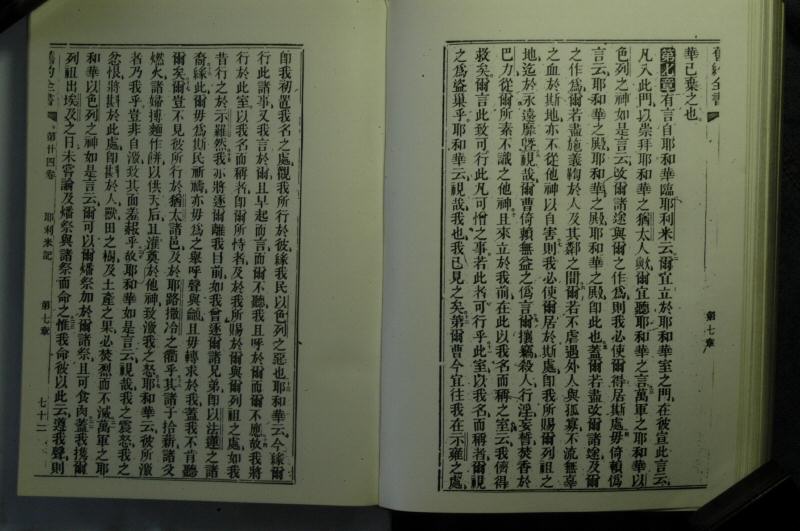 舊約全書
第七章
華已棄之也
第七章有言自耶和華臨耶利米云爾宜立於耶和華室之門在彼宣此言云
凡入此門以崇拜耶和華之猶太人歟爾宜聽耶和華之言萬軍之耶和華以
色列之神如是言云改爾諸途與爾之作爲則我必使爾得居斯處毋倚賴僞
言云耶和華之殿耶和華之殿耶和華之殿卽此也蓋爾若盡改爾諸途及爾
之作爲爾若盡施義鞫於人及其鄰之間爾若不虐遇外人與孤寡不流無辜
之血於斯地亦不從他神以自害則我必使爾居於斯處卽我所賜爾列祖之
地迄於永遠靡曁視哉爾曹倚賴無益之僞言爾攘竊殺人行淫妄誓焚香於
巴力從爾所素不識之他神且來立於我前在此以我名而稱之室云我儕得
救矣爾言此致可行此凡可憎之事若此者可行乎此室以我名而稱者爾視
之爲盜巢乎耶和華云視哉我也我已見之矣第爾曹今宜往我在示羅之處
卽我初置我名之處觀我所行於彼緣我民以色列之惡也耶和華云今緣爾
行此諸事又我言於爾且早起而言而爾不聽我且呼於爾而爾不應故我將
行於此室以我名而稱者卽爾所恃者及於我所賜於爾與爾列祖之處如我
昔行之於示羅然我亦將逐爾離我目前如我曾逐爾諸兄弟卽以法蓮之諸
裔緣此爾毋爲斯民祈禱亦毋爲之舉呼聲與龥且毋轉求於我蓋我不肯聽
爾矣爾豈不見彼所行於猶太諸邑及於耶路撒冷之衢乎其諸子拾薪諸父
燃火諸婦摶麵作餅以供天后且灌奠於他神致激我之怒耶和華云彼所激
者乃我乎豈非自激致其面羞赧乎故耶和華如是言云視哉我之震怒我之
忿恨將斟於此處卽斟於人獸田之樹及土產之果必焚烈而不滅萬軍之耶
和華以色列之神如是言云爾可以爾燔祭加於爾諸祭且可食肉蓋我攜爾
列祖出埃及之日未嘗論及燔祭與諸祭而命之惟我命彼以此云遵我聲則
舊約全書
第廿四卷
耶利米記
第七章
七十二